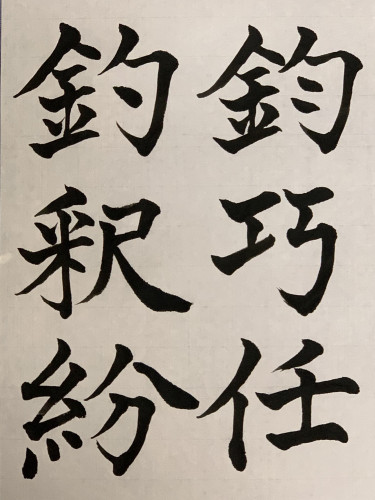 鈞巧任
釣釈紛